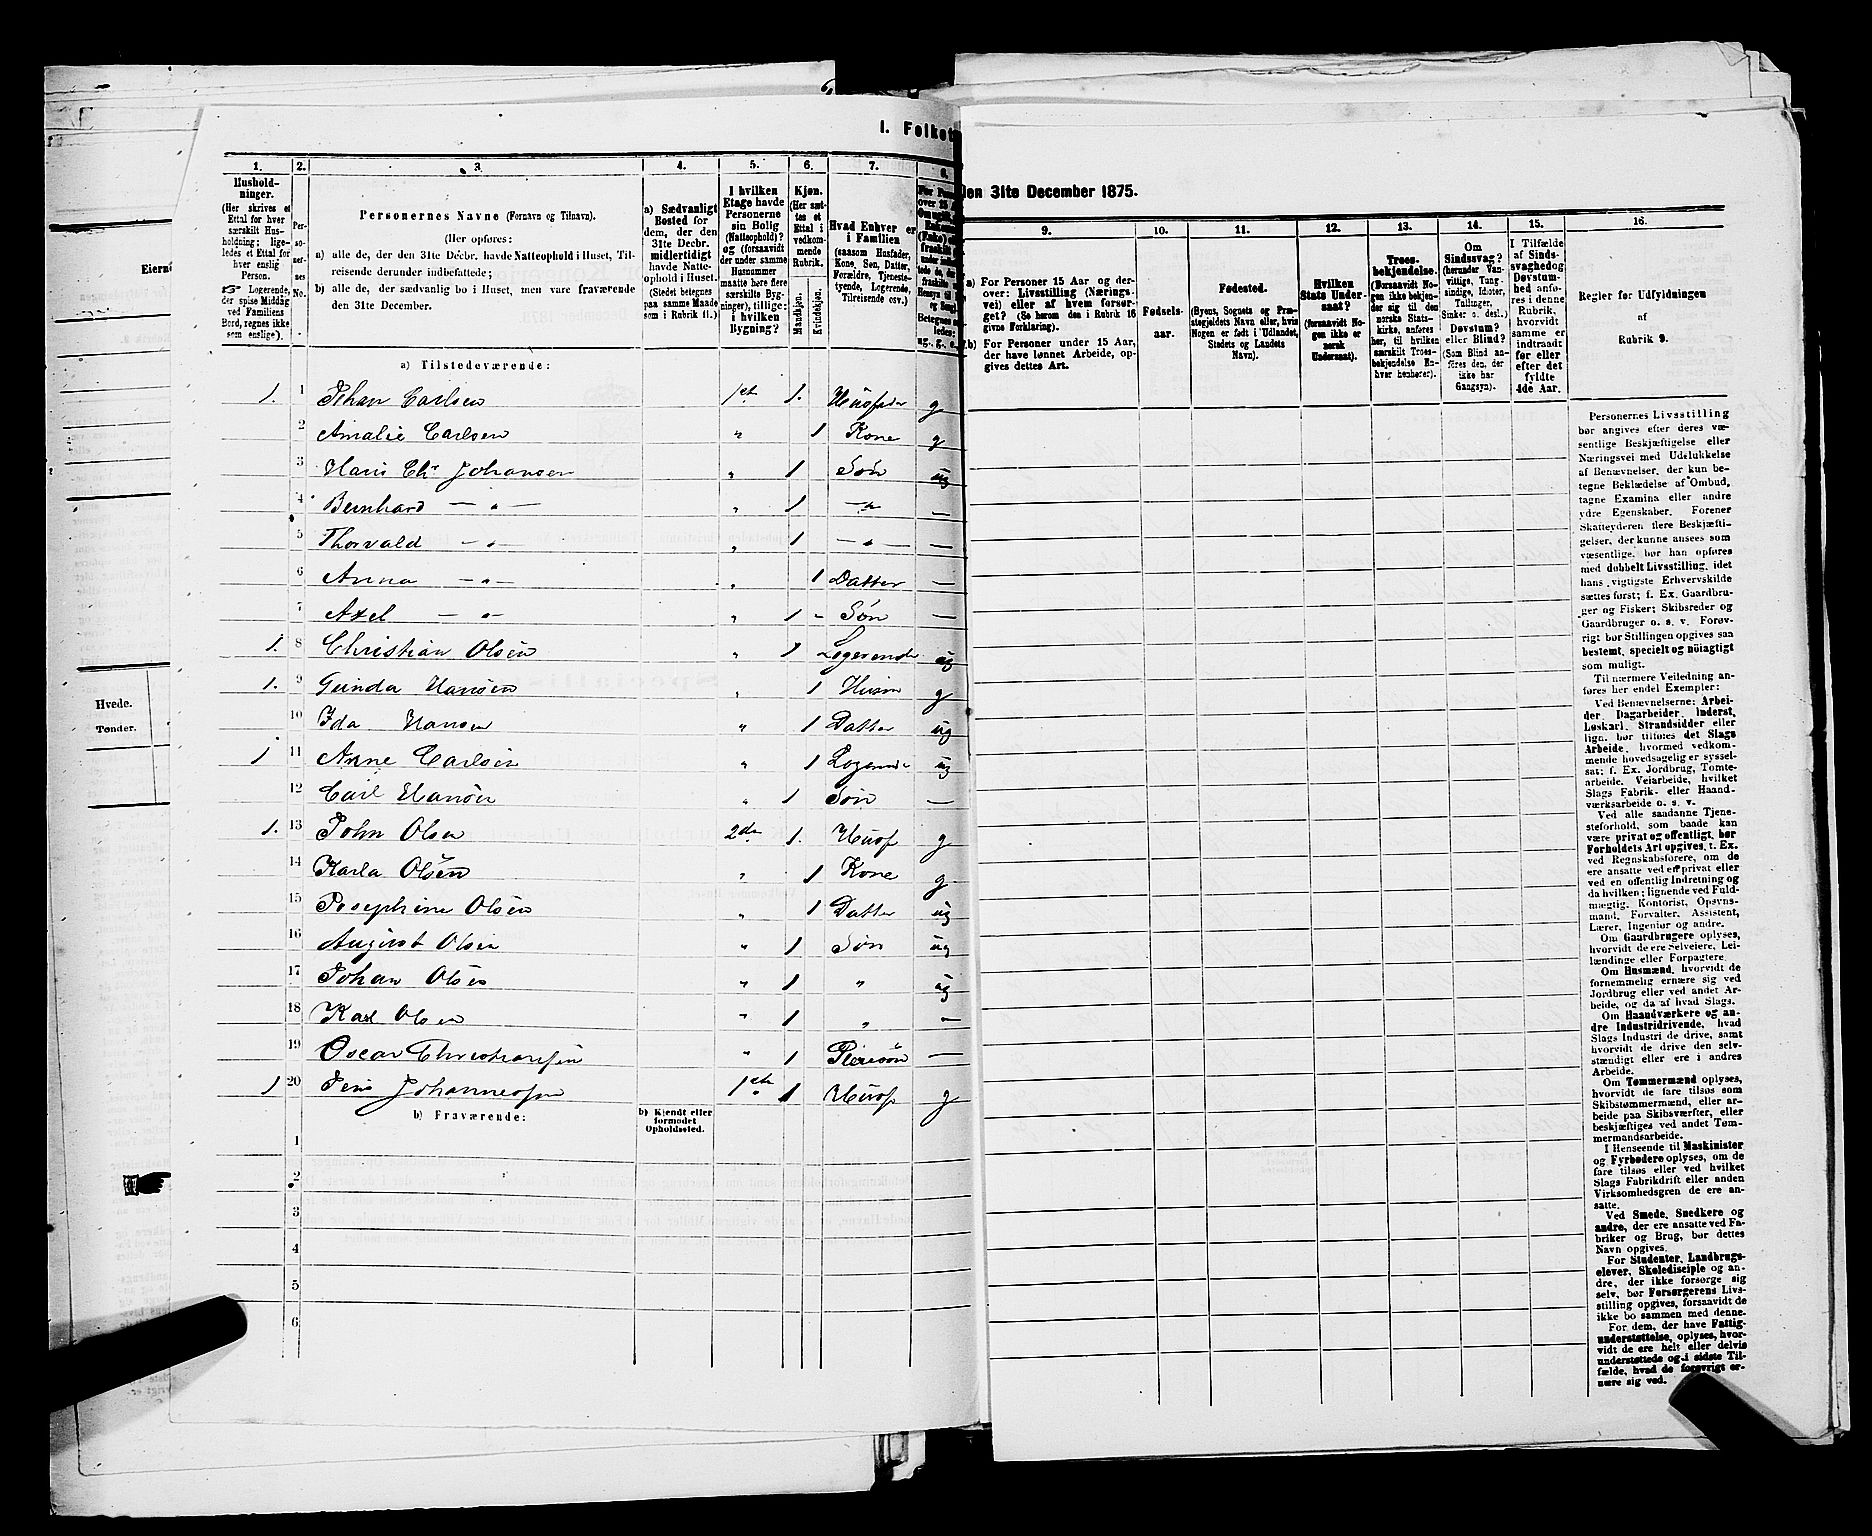 I. Folket
Den 31te December 1875.
Eiernes
Hvede.
Tønder.
1.
Husholdninger.
(Her skrives et
Ettal for hver
særskilt Husholdning;
ligeledes et Ettal for
hver enslig
Person.
Logerende,
der spise Middag
ved Familiens
Bord, regnes ikke
som enslige).
2.
Personernes
No.
3.
Personernes Navne (Fornavn og Tilnavn).
(Her opføres:
a) alle de, der den 31te Decbr. havde Natteophold i Huset, Tilreisende derunder indbefattede;
b) alle de, der sædvanlig bo i Huset, men vare fraværende den 31te December.
4.
a) Sædvanligt
Bosted for
dem, der den
31te Decbr.
midlertidigt
havde Natteophold i Huset.
(Stedet betegnes
paa samme Maade
som i Rubrik 11.)
5.
I hvilken
Etage havde
Personerne
sin Bolig
(Natteophold)?
og (forsaavidt
der under samme
Husnummer
maatte høre flere
særskilte Bygninger), tillige:
i hvilken
Bygning?
6.
Kjøn.
(Her sættes et
Ettal i
vedkommende
Rubrik.
Mandkjøn.
Kvindekjøn.
7.
Hvad Enhver er
i Familien
(saasom Husfader,
Kone, Søn, Datter,
Forældre, Tjenestetyende, Logerende,
Tilreisende osv.)
8.
9.
a) For Personer 15 Aar og derover: Livsstilling (Næringsvei) eller af hvem forsørget? (Se herom den i Rubrik 16 givne Forklaring).
b) For Personer under 15 Aar, der have lønnet Arbeide, opgives dettes Art.
10.
Fødselsaar.
11.
Fødested.
(Byens, Sognets og Præstegjeldets Navn eller, hvis Nogen er født i Udlandet, Stedets og Landets Navn).
12.
Hvilken
Stats Undersaat?
(forsaavidt Nogen ikke er
norsk
Undersaat).
13.
Troesbekjendelse.
(Forsaavidt Nogen ikke bekjender sig til den
norske Statskirke, anføres
her, til hvilken
særskilt Troesbekjendelse Enhver henhører).
14.
Om
Sindssvag?
(herunder Vanvittige, Tungsindige, Idioter,
Tullinger,
Sinker o. desl.)
Døvstum?
eller Blind?
(Som Blind anføres den, der
ikke har
Gangsyn).
15.
I Tilfælde
af Sindssvaghed og
Døvstumhed anføres i denne
Rubrik,
hvorvidt
samme er
indtraadt
før eller
efter det
fyldte
4de Aar.
16.
Regler for Udfyldningen
af
Rubrik 9.
a) Tilstedeværende:
1. 1 Johan Carlsen 1ste 1. Husfader g
2 Amalie Carlsen " 1 Kone g
3 Hans Chr Johansen " 1 Søn ug
4 Bernhard — " — " 1 — " —
5 Thorvald — " — " 1 — " — —
6 Anna — " — " 1 Datter —
7 Axel — " — " 1 - Søn —
1. 8 Christian Olsen " 1 Logerende ug
1. 9 Gunda Hansen " 1 g
10 Ida Hansen " 1 Datter ug
1 11 Anne Carlsen " 1 Logerende ug
12 Carl Hansen " 1 Søn —
1. 13 John Olsen 2den 1. Husf g
14 Karla Olsen " 1 Kone g
15 Josephine Olsen " 1 Datter ug
16 August Olsen " 1 Søn ug
17 Johan Olsen " 1 " ug
18 Karl Olsen " 1 " —
19 Oscar Christiansen " 1 Pleiesøn —
1 20 Jens Johannessen 1ste 1 Husf g
b) Fraværende:
b) Kjendt eller
formodet
Opholdssted.
1
2
3
4
5
6
Personernes Livsstilling
bør angives efter deres væsentlige Beskjæftigelse eller
Næringsvei med Udelukkelse
af Benævnelser, der kun betegne Beklædelse af Ombud,
tagne Examina eller andre
ydre Egenskaber. Forener
Skatteyderen flere Beskjæftigelser, der kunne ansees som
væsentlige, bør han opføres
med dobbelt Livsstilling, idet
hans vigtigste Erhvervskilde
sættes først; f. Ex. Gaardbruger og Fisker; Skibsreder og
Gaardbruger o. s. v. Forøvrigt bør Stillingen opgives saa
bestemt, specielt og nöiagtigt
som muligt.
Til nærmere Veiledning anføres her endel Exempler:
Ved Benævnelserne: Arbeider, Dagarbeider, Inderst,
Løskarl, Strandsidder eller
lign. bør tilføies det Slags
Arbeide, hvormed vedkommende hovedsagelig er sysselsat; f. Ex. Jordbrug, Tomtearbeide, Veiarbeide, hvilket
Slags Fabrik- eller Haandværksarbeide o. s. v.
Ved alle saadanne Tjenesteforhold, som baade kan
være privat og offentligt, bør
Forholdets Art opgives, f. Ex.
ved Regnskabsførere, om de
ere ansatte ved en privat eller
ved en offentlig Indretning og
da hvilken; lignende ved Fuldmægtig, Kontorist, Opsynsmand, Forvalter, Assistent,
Lærer, Ingeniør og andre.
Om Gaardbrugere oplyses,
hvorvidt de ere Selveiere, Leilændinge eller Forpagtere.
Om Husmænd, hvorvidt de
fornemmelig ernære sig ved
Jordbrug eller ved andet Arbeide, og da af hvad Slags.
Om Haandværkere og andre Industridrivende, hvad
Slags Industri de drive, samt
hvorvidt de drive den selvstændigt eller ere i andres
Arbeide.
Om Tømmermænd oplyses,
hvorvidt de fare tilsøs som
Skibstømmermænd, eller arbeide paa Skibsværfter, eller
beskjæftiges ved andet Tømmermandsarbeide.
I Henseende til Maskinister
og Fyrbødere oplyses, om de
fare tilsøs eller ved hvilket
Slags Fabrikdrift eller anden
Virksomhedsgren de ere ansatte.
Ved Smede, Snedkere og
andre, der ere ansatte ved Fabriker og Brug, bør dettes
Navn opgives.
For Studenter, Landbrugselever, Skoledisciple og andre, der ikke forsørge sig
selv, bør Forsørgerens Livsstilling opgives, forsaavidt de
ikke bo sammen med denne.
For dem, der have Fattigunderstøttelse, oplyses, hvorvidt de ere helt eller delvis
understøttede og i sidste Tilfælde, hvad de forøvrigt ernære sig ved.